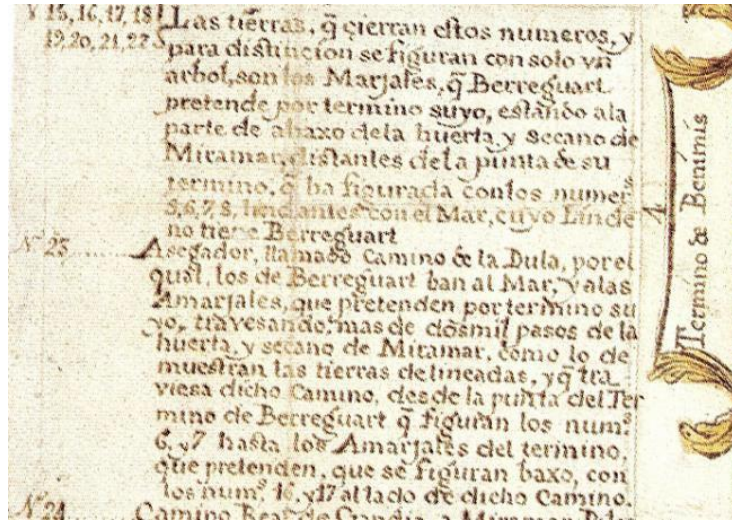 Y 15, 16, 17, 18
19, 20, 21, 22
Las tierras, q̃ çierran estos numeros, y
para distincion se figuran con solo vn
arbol, son los Marjales, q̃ Berreguart
pretende por termino suyo, estando ala
parte de abaxo dela huerta y secano de
Miramar, distantes dela punta de su
termino, q̃ ha figurada con los numer.s
5, 6, 7, 8, lindantes con el Mar, cuyo Linde
no tiene Berreguart
N.º 23
Asegador, llamado Camino de la Dula, por el
qual, los de Berreguart ban al Mar, y alas
Amarjales, que pretenden por termino su
yo, travesando, mas de dosmil pasos de la
huerta, y secano de Miramar, como lo de
muestran las tierras delineadas, y q̃ tra
viesa dicho Camino, desde la punta del Ter
mino de Berreguart q̃ figuran los num.s
6, y 7 hasta los Amarjales del termino,
que pretenden, que se figuran baxo, con
los num.s 16, y 17 al lado de dicho Camino.
N.º 24
Camino Real de Gandia, a Miramar
A
Termino de Benimis